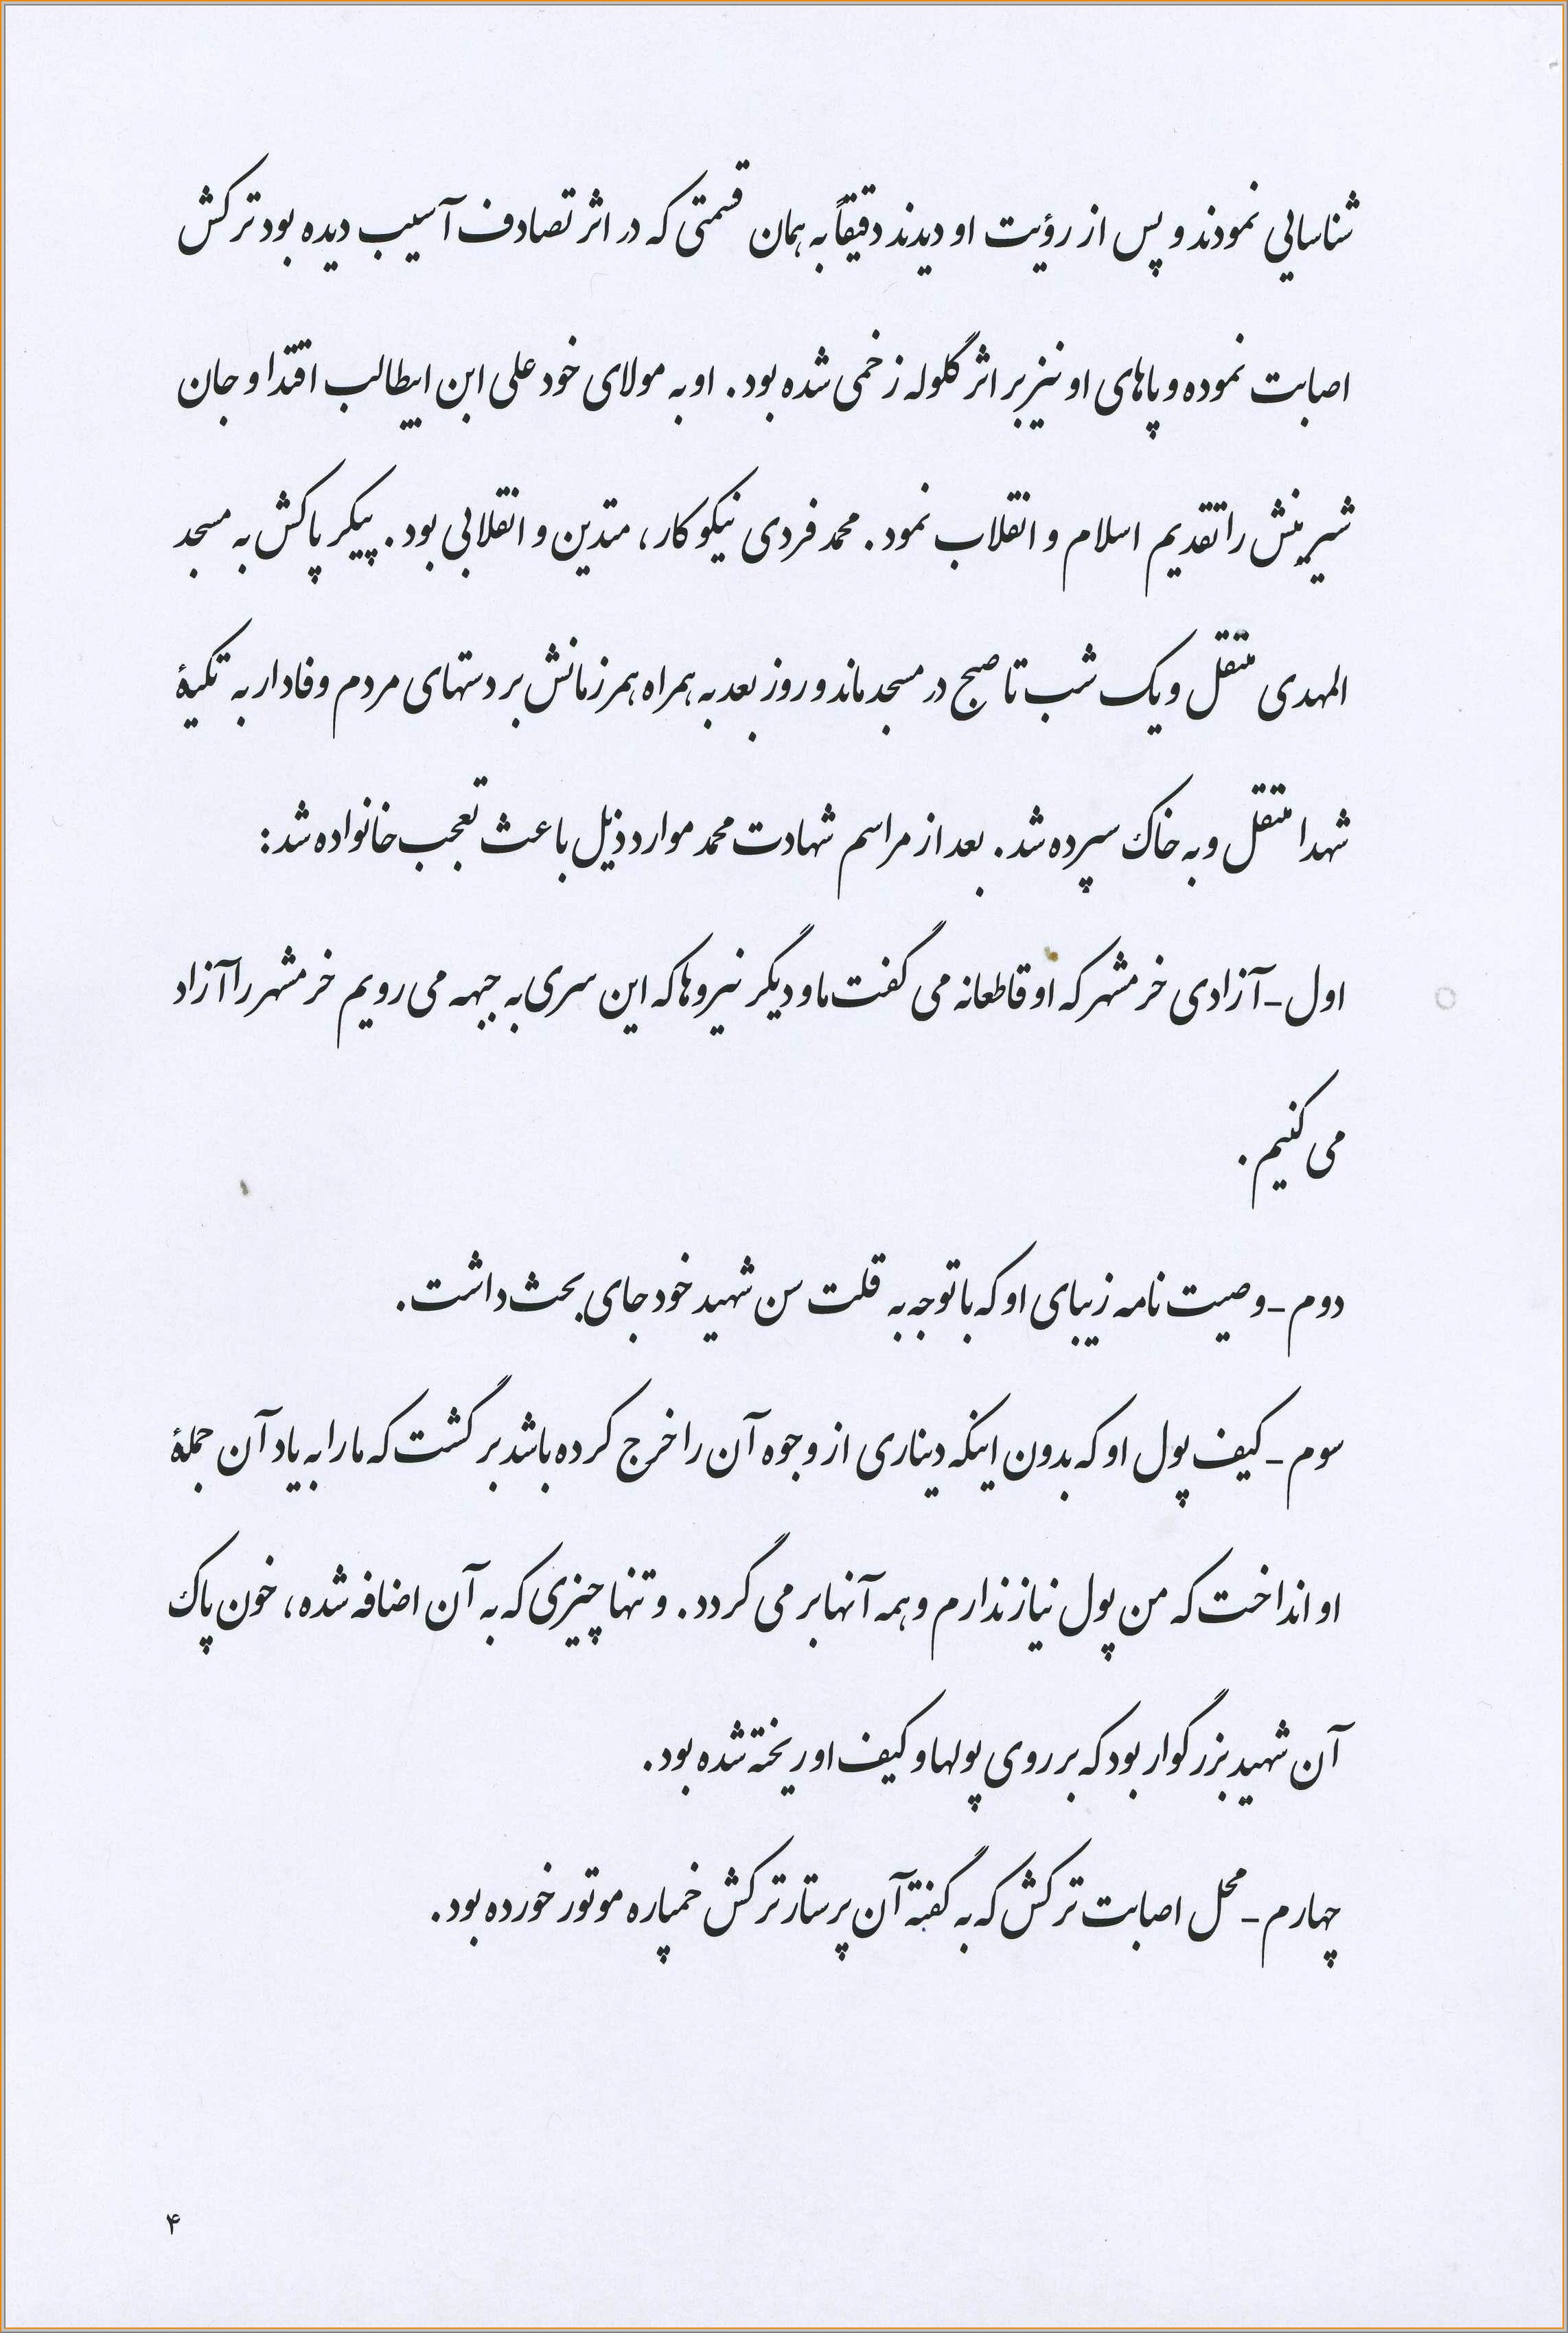 شناسایی نمودند و پس از رؤیت او دیدند دقیقاً به همان قسمتی که در اثر تصادف آسیب دیده بود ترکش
اصابت نموده و پاهای او نیز بر اثر گلوله زخمی شده بود. او به مولای خود علی ابن ابیطالب اقتدا و جان
شیرینش را تقدیم اسلام و انقلاب نمود. محمد فردی نیکوکار، متدین و انقلابی بود. پیکر پاکش به مسجد
المهدی منتقل و یک شب تا صبح در مسجد ماند و روز بعد به همراه همرزمانش بر دستهای مردم وفادار به تکیۀ
شهدا منتقل و به خاک سپرده شد. بعد از مراسم شهادت محمد موارد ذیل باعث تعجب خانواده شد:
اول-آزادی خرمشهر که او قاطعانه می گفت ما و دیگر نیروها که این سری به جبهه می رویم خرمشهر را آزاد
می کنیم.
دوم-وصیت نامه زیبای او که با توجه به قلت سن شهید خود جای بحث داشت.
سوم-کیف پول او که بدون اینکه دیناری از وجوه آن را خرج کرده باشد برگشت که ما را به یاد آن جملۀ
او انداخت که من پول نیاز ندارم و همه آنها بر می گردد. و تنها چیزی که به آن اضافه شده، خون پاک
آن شهید بزرگوار بود که بر روی پولها و کیف او ریخته شده بود.
چهارم-محل اصابت ترکش که به گفته آن پرستار ترکش خمپاره موتور خورده بود.
۴